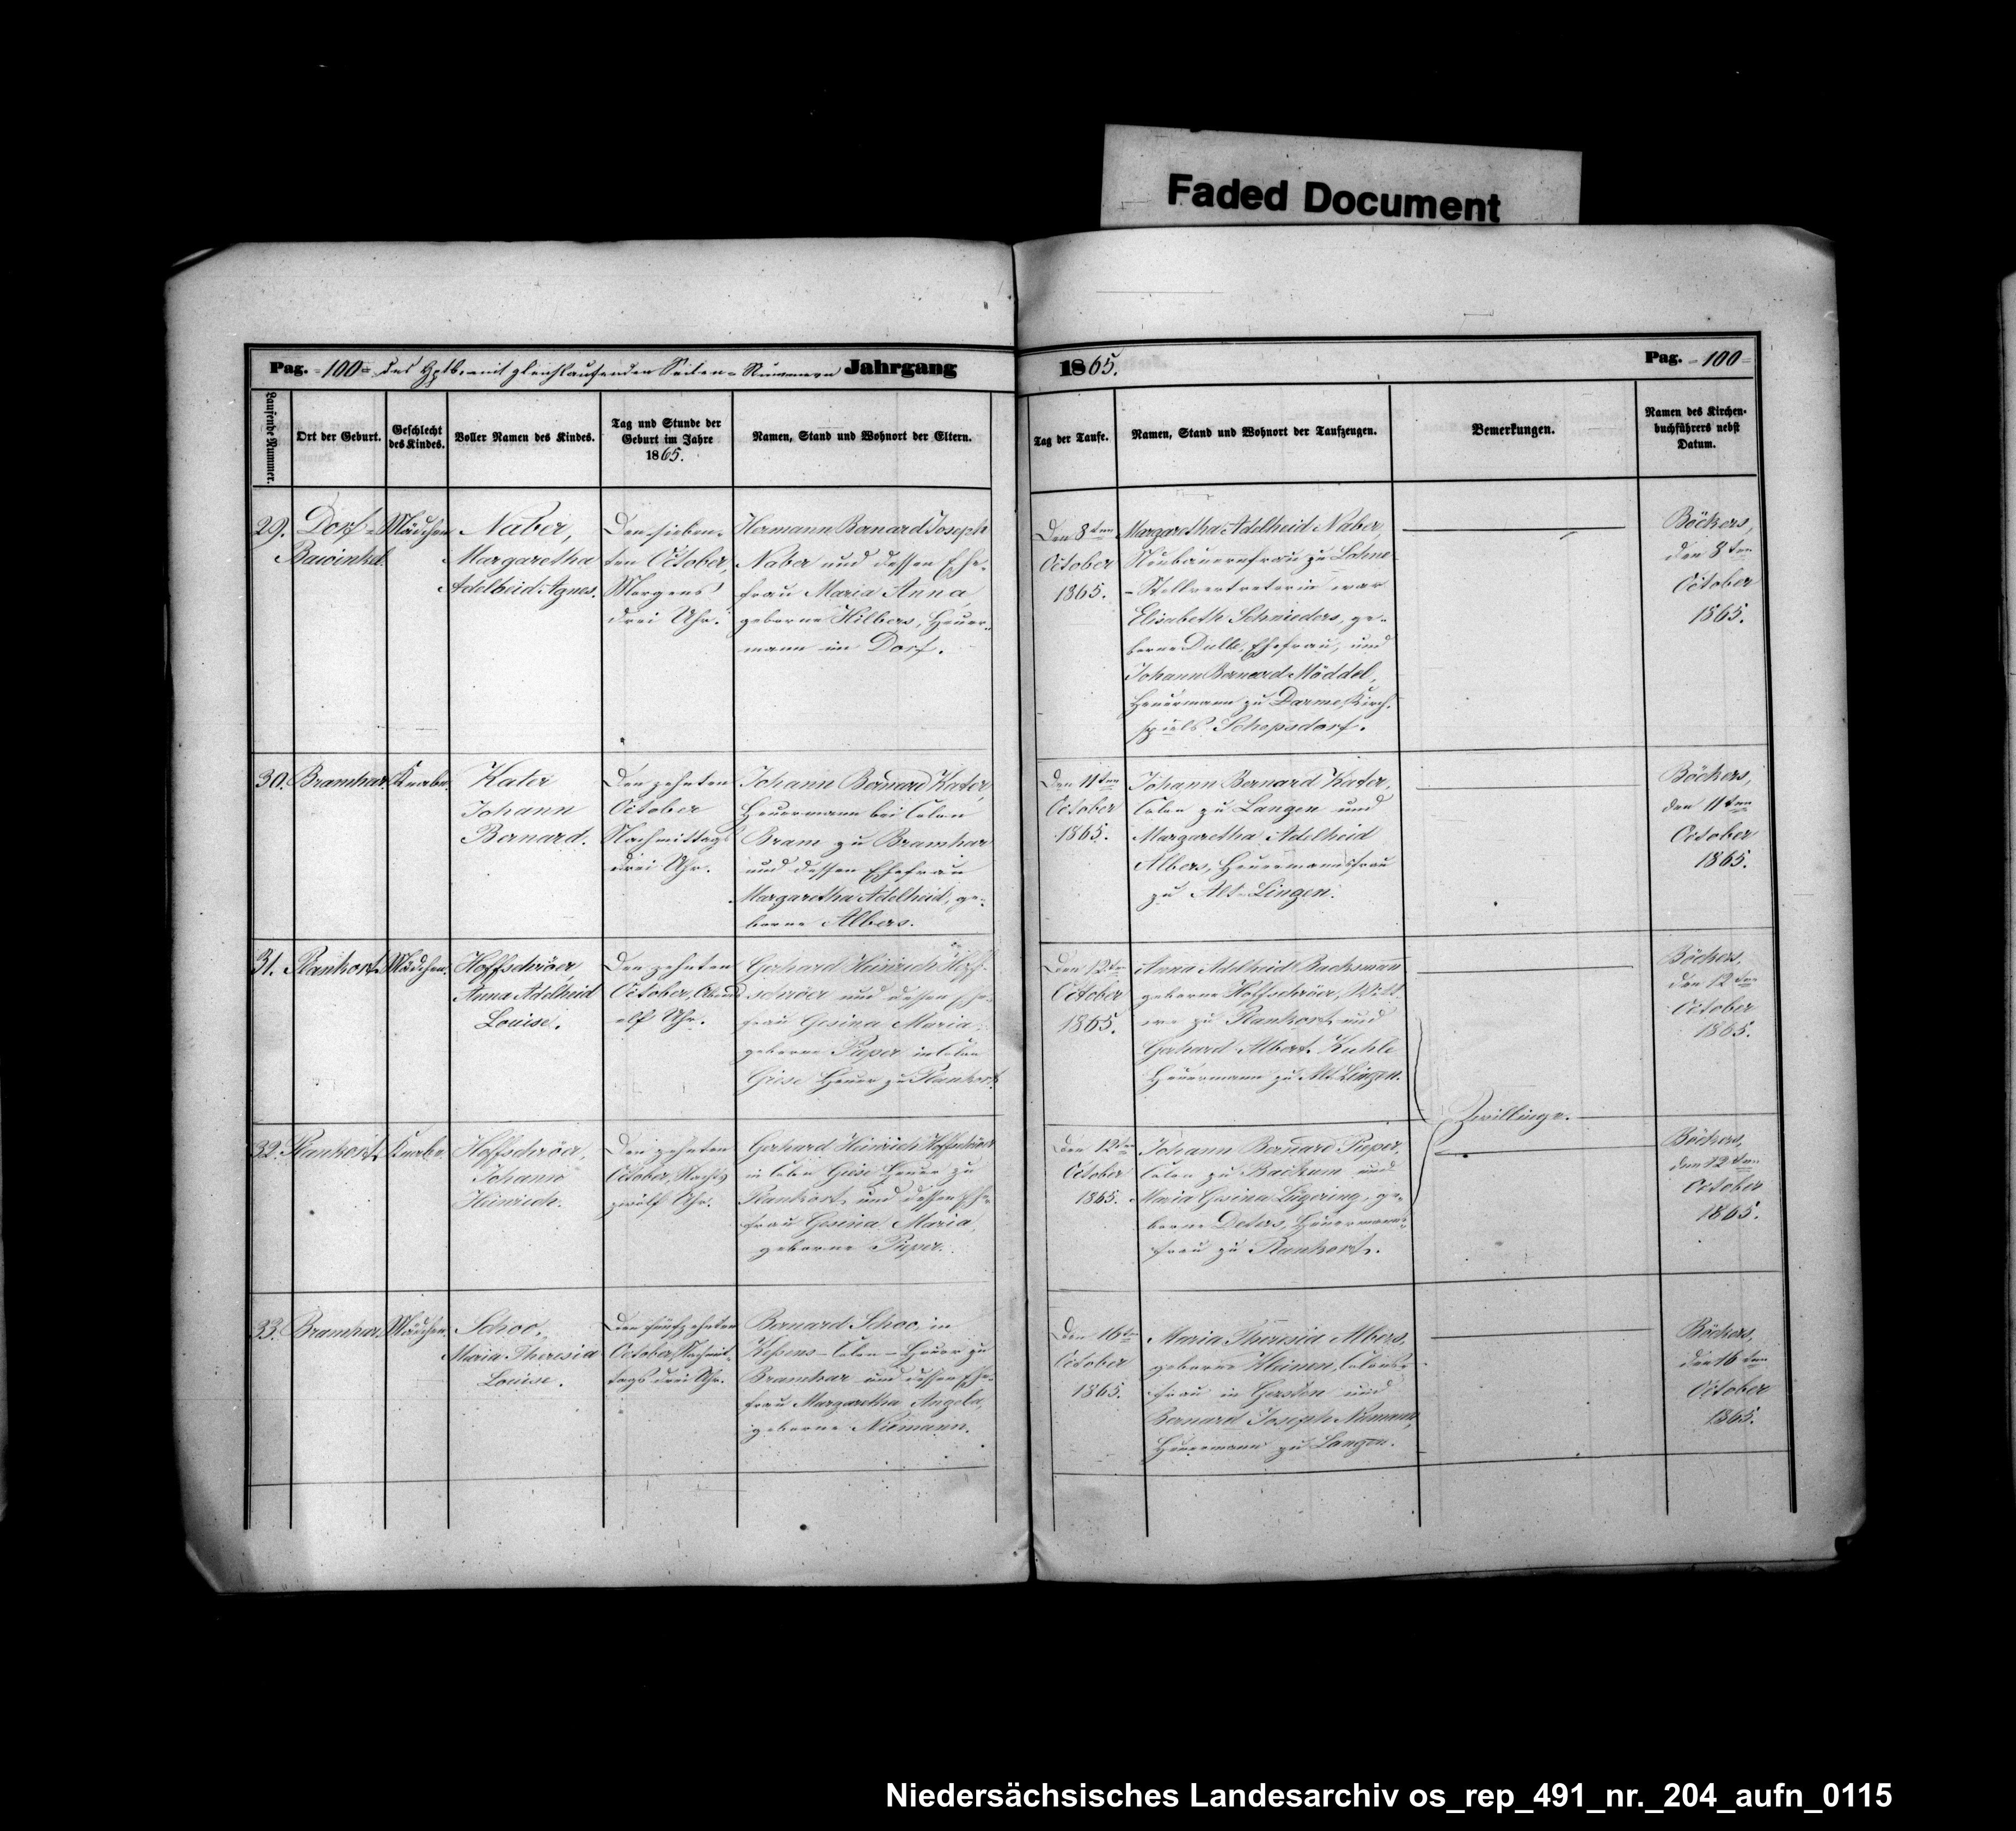 Faded Document
Pag. 100 des Hptb. mit gleichlaufenden Seiten-Nummern Jahrgang
1865.
Pag. 100
Laufende Nummer.
Ort der Geburt.
Geschlecht
des Kindes.
Voller Namen des Kindes.
Tag und Stunde der
Geburt im Jahre
1865.
Namen, Stand und Wohnort der Eltern.
Tag der Taufe.
Namen, Stand und Wohnort der Taufzeugen.
Bemerkungen.
Namen des Kirchen-
buchführers nebst
Datum.
29.
Dorf-
Bawinkel.
Mädchen
Naber,
Margaretha
Adelheid Agnes.
Den sieben-
ten October,
Morgens
drei Uhr.
Hermann Bernard Joseph
Naber und dessen Ehe-
frau Maria Anna,
geborne Hilbers, Heuer-
mann im Dorf.
Den 8ten
October
1865.
Margaretha Adelheid Naber,
Neubauernfrau zu Lohne
- Stellvertreterin war
Elisabeth Schnieders, ge-
borne Dulle, Ehefrau, und
Johann Bernard Möddel,
Heuermann zu Darme, Kirch-
spiels Schepsdorf.
Böckers,
den 8ten
October
1865.
30.
Bramhar.
Knabe.
Kater
Johann
Bernard.
Den zehnten
October
Nachmittags
drei Uhr.
Johann Bernard Kater,
Heuermann bei Colon
Bram zu Bramhar
und dessen Ehefrau
Margaretha Adelheid, ge-
borne Albers.
Den 11ten
October
1865.
Johann Bernard Kater,
Colon zu Langen und
Margaretha Adelheid
Albers, Heuermannsfrau
zu Alt-Lingen.
Böckers,
den 11ten
October
1865.
31.
Plankort.
Mädchen.
Hoffschröer,
Anna Adelheid
Louise.
Den zehnten
October, Abends
elf Uhr.
Gerhard Heinrich Hoff-
schröer und dessen Ehe-
frau Gesina Maria,
geborne Pieper in Colon
Giese Heuer zu Plankort.
Den 12ten
October
1865.
Anna Adelheid Backsmann
geborne Hoffschröer, Witt-
we zu Plankort und
Gerhard Albert Kuhle
Heuermann zu Alt-Lingen.
Böckers,
den 12ten
October
1865.
Zwillinge.
32.
Plankort.
Knabe.
Hoffschröer,
Johann
Heinrich.
Den zehnten
October, Nachts
zwölf Uhr.
Gerhard Heinrich Hoffschröer
in Colon Giese Heuer zu
Plankort und dessen Ehe-
frau Gesina Maria,
geborne Pieper.
Den 12ten
October
1865.
Johann Bernard Pieper,
Colon zu Backum und
Maria Gesina Lügering, ge-
borne Deters, Heuermanns-
frau zu Plankort.
Böckers,
den 12ten
October
1865.
33.
Bramhar.
Mädchen.
Schoo,
Maria Theresia
Louise.
Den fünfzehnten
October, Nachmit-
tags drei Uhr.
Bernard Schoo, in
Colon - Heuer zu
Bramhar und dessen Ehe-
frau Margaretha Angela,
geborne Niemann.
Den 16ten
October
1865.
Maria Theresia Albers,
geborne Kleinen, Colons-
frau in Gersten und
Bernard Joseph Niemann,
Heuermann zu Langen.
Böckers,
den 16ten
October
1865.
Niedersächsisches Landesarchiv os_rep_491_nr._204_aufn_0115